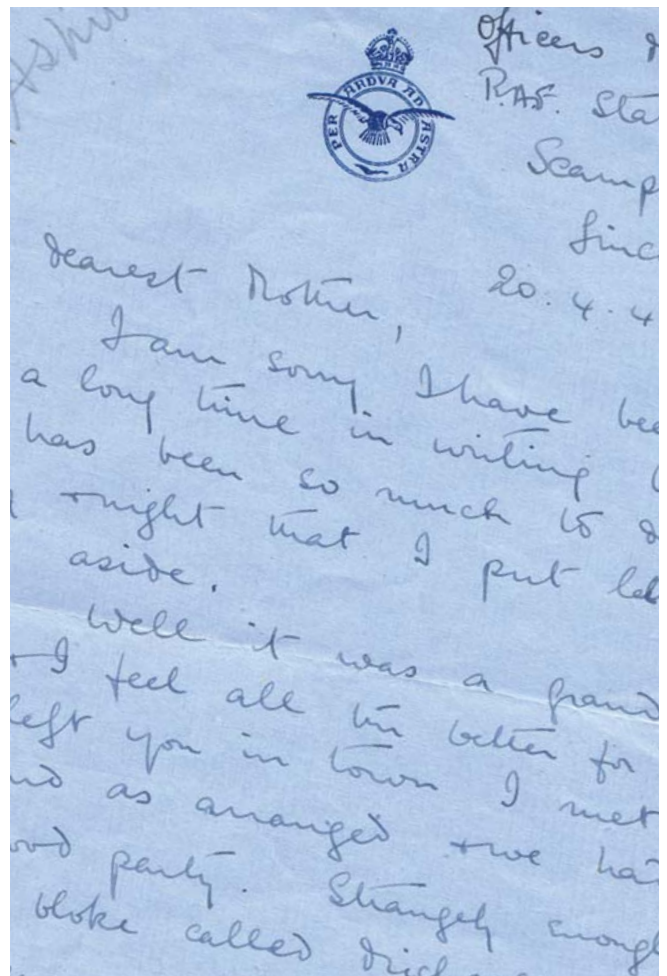 Ashi
PER ARDVA AD ASTRA
Officers
R.A.F. Sta
Scamp
Linc
20.4.4
Dearest Mother,
I am sorry I have bee
a long time in writing
has been so much to d
+ night that I put let
aside.
Well it was a grand
+ I feel all the better for
left you in town I met
as arranged + we had
party. Strangely enough
bloke called